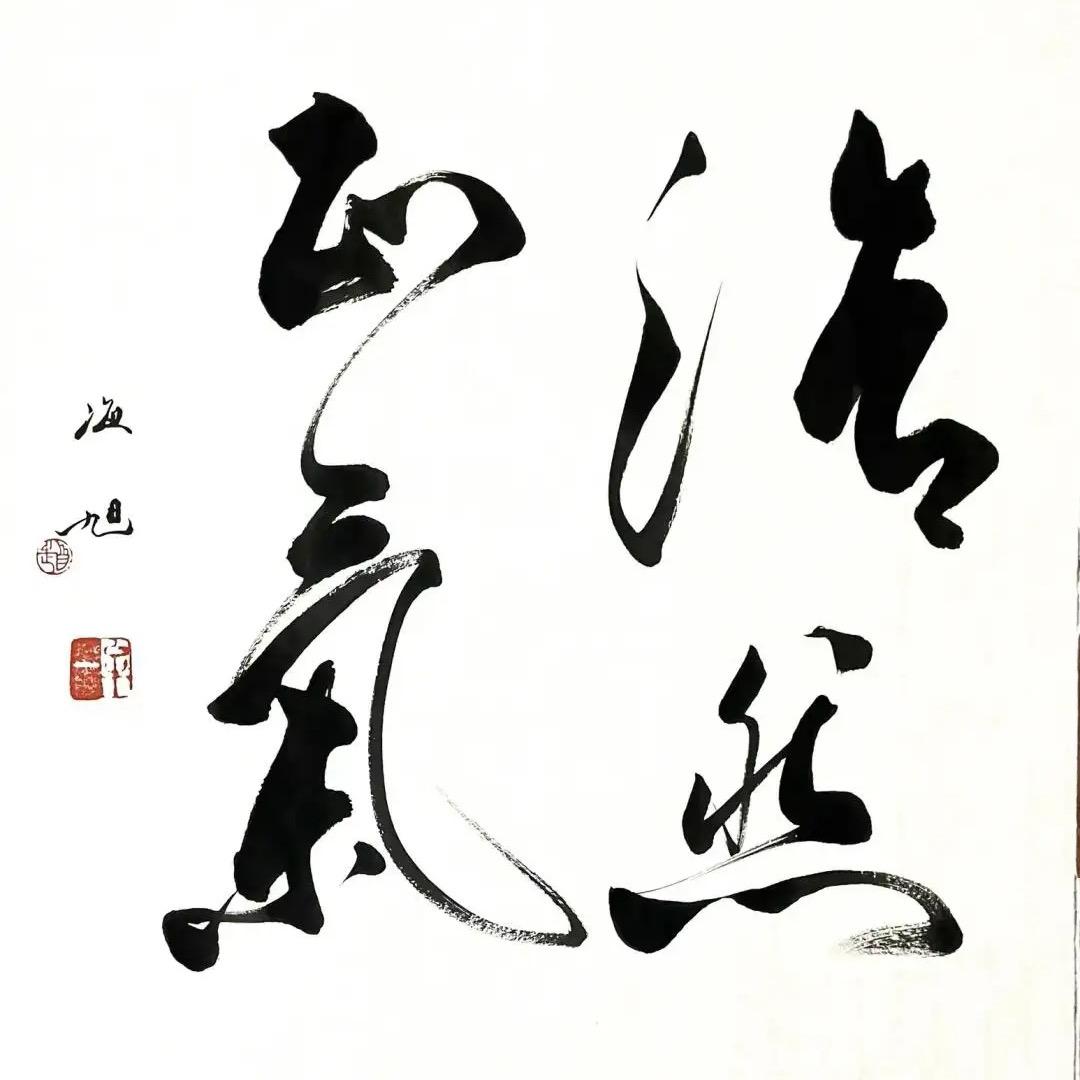 浩然
正氣
海旭